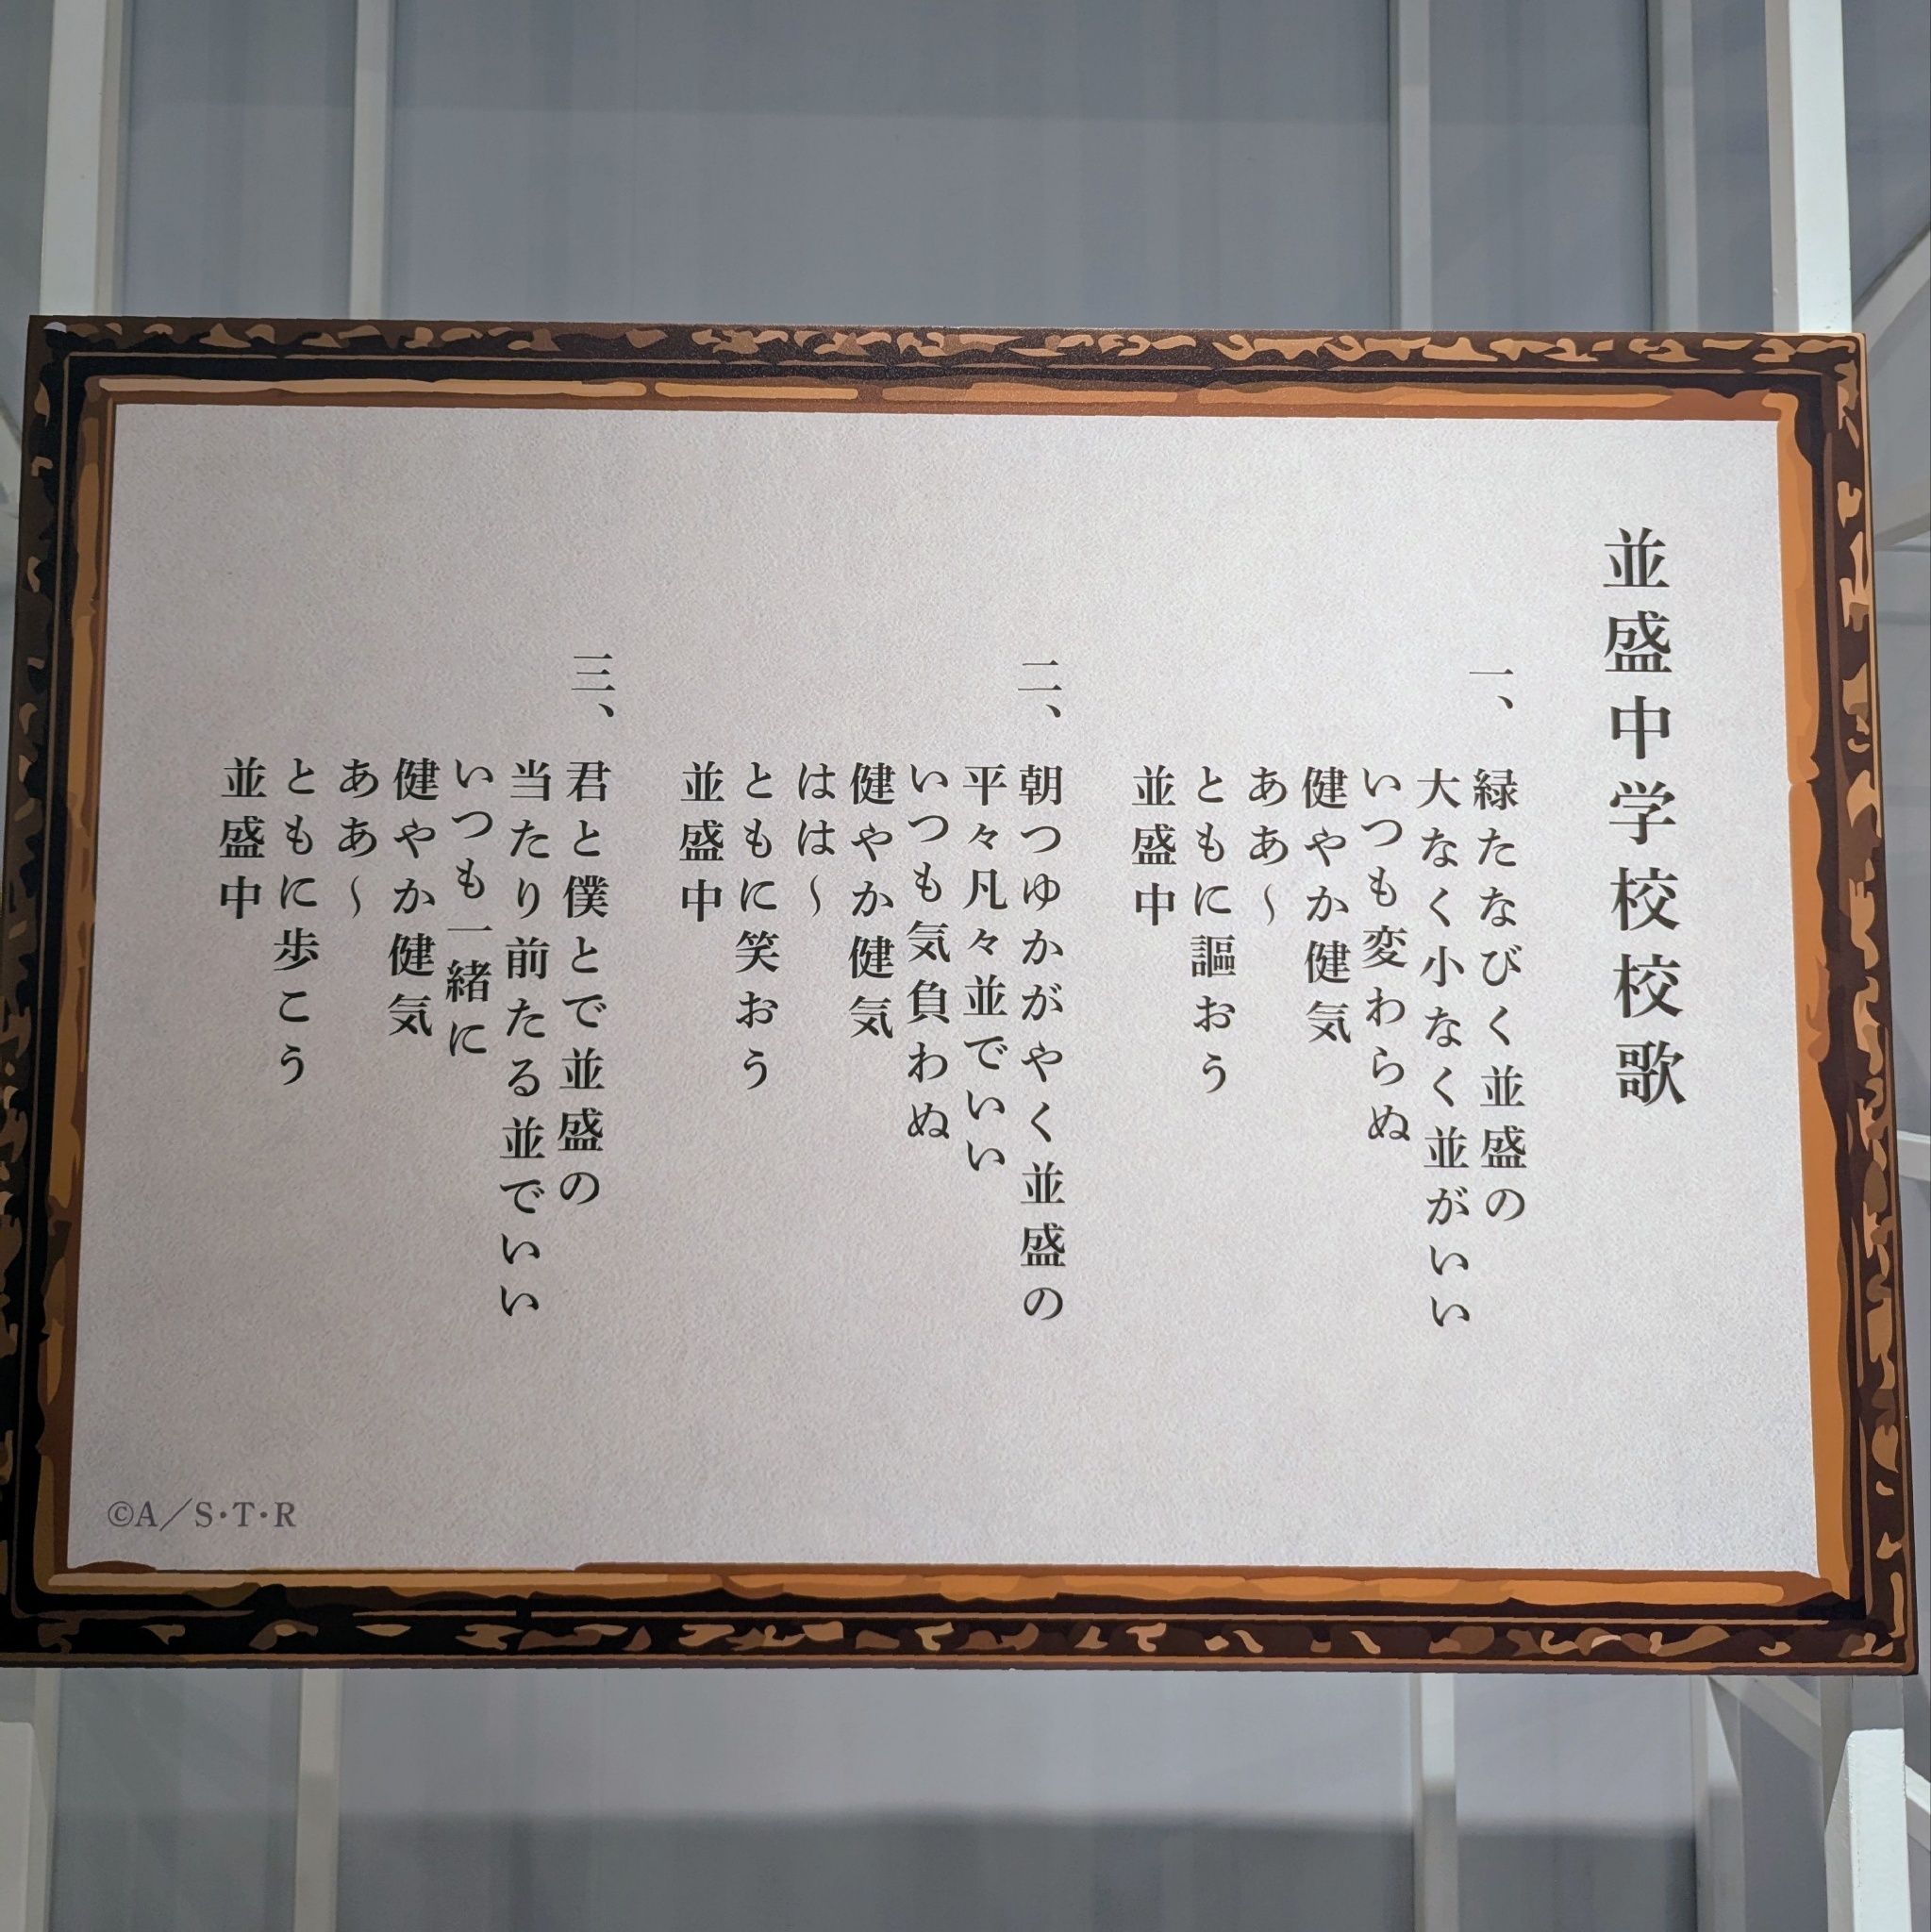 並盛中学校校歌
一、緑たなびく並盛の
大なく小なく並がいい
いつも変わらぬ
健やか健気
ああ〜
ともに謳おう
並盛中
二、朝つゆかがやく並盛の
平々凡々並でいい
いつも気負わぬ
健やか健気
はは〜
ともに笑おう
並盛中
三、君と僕とで並盛の
当たり前たる並でいい
いつも一緒に
健やか健気
ああ〜
ともに歩こう
並盛中
©A／S·T·R